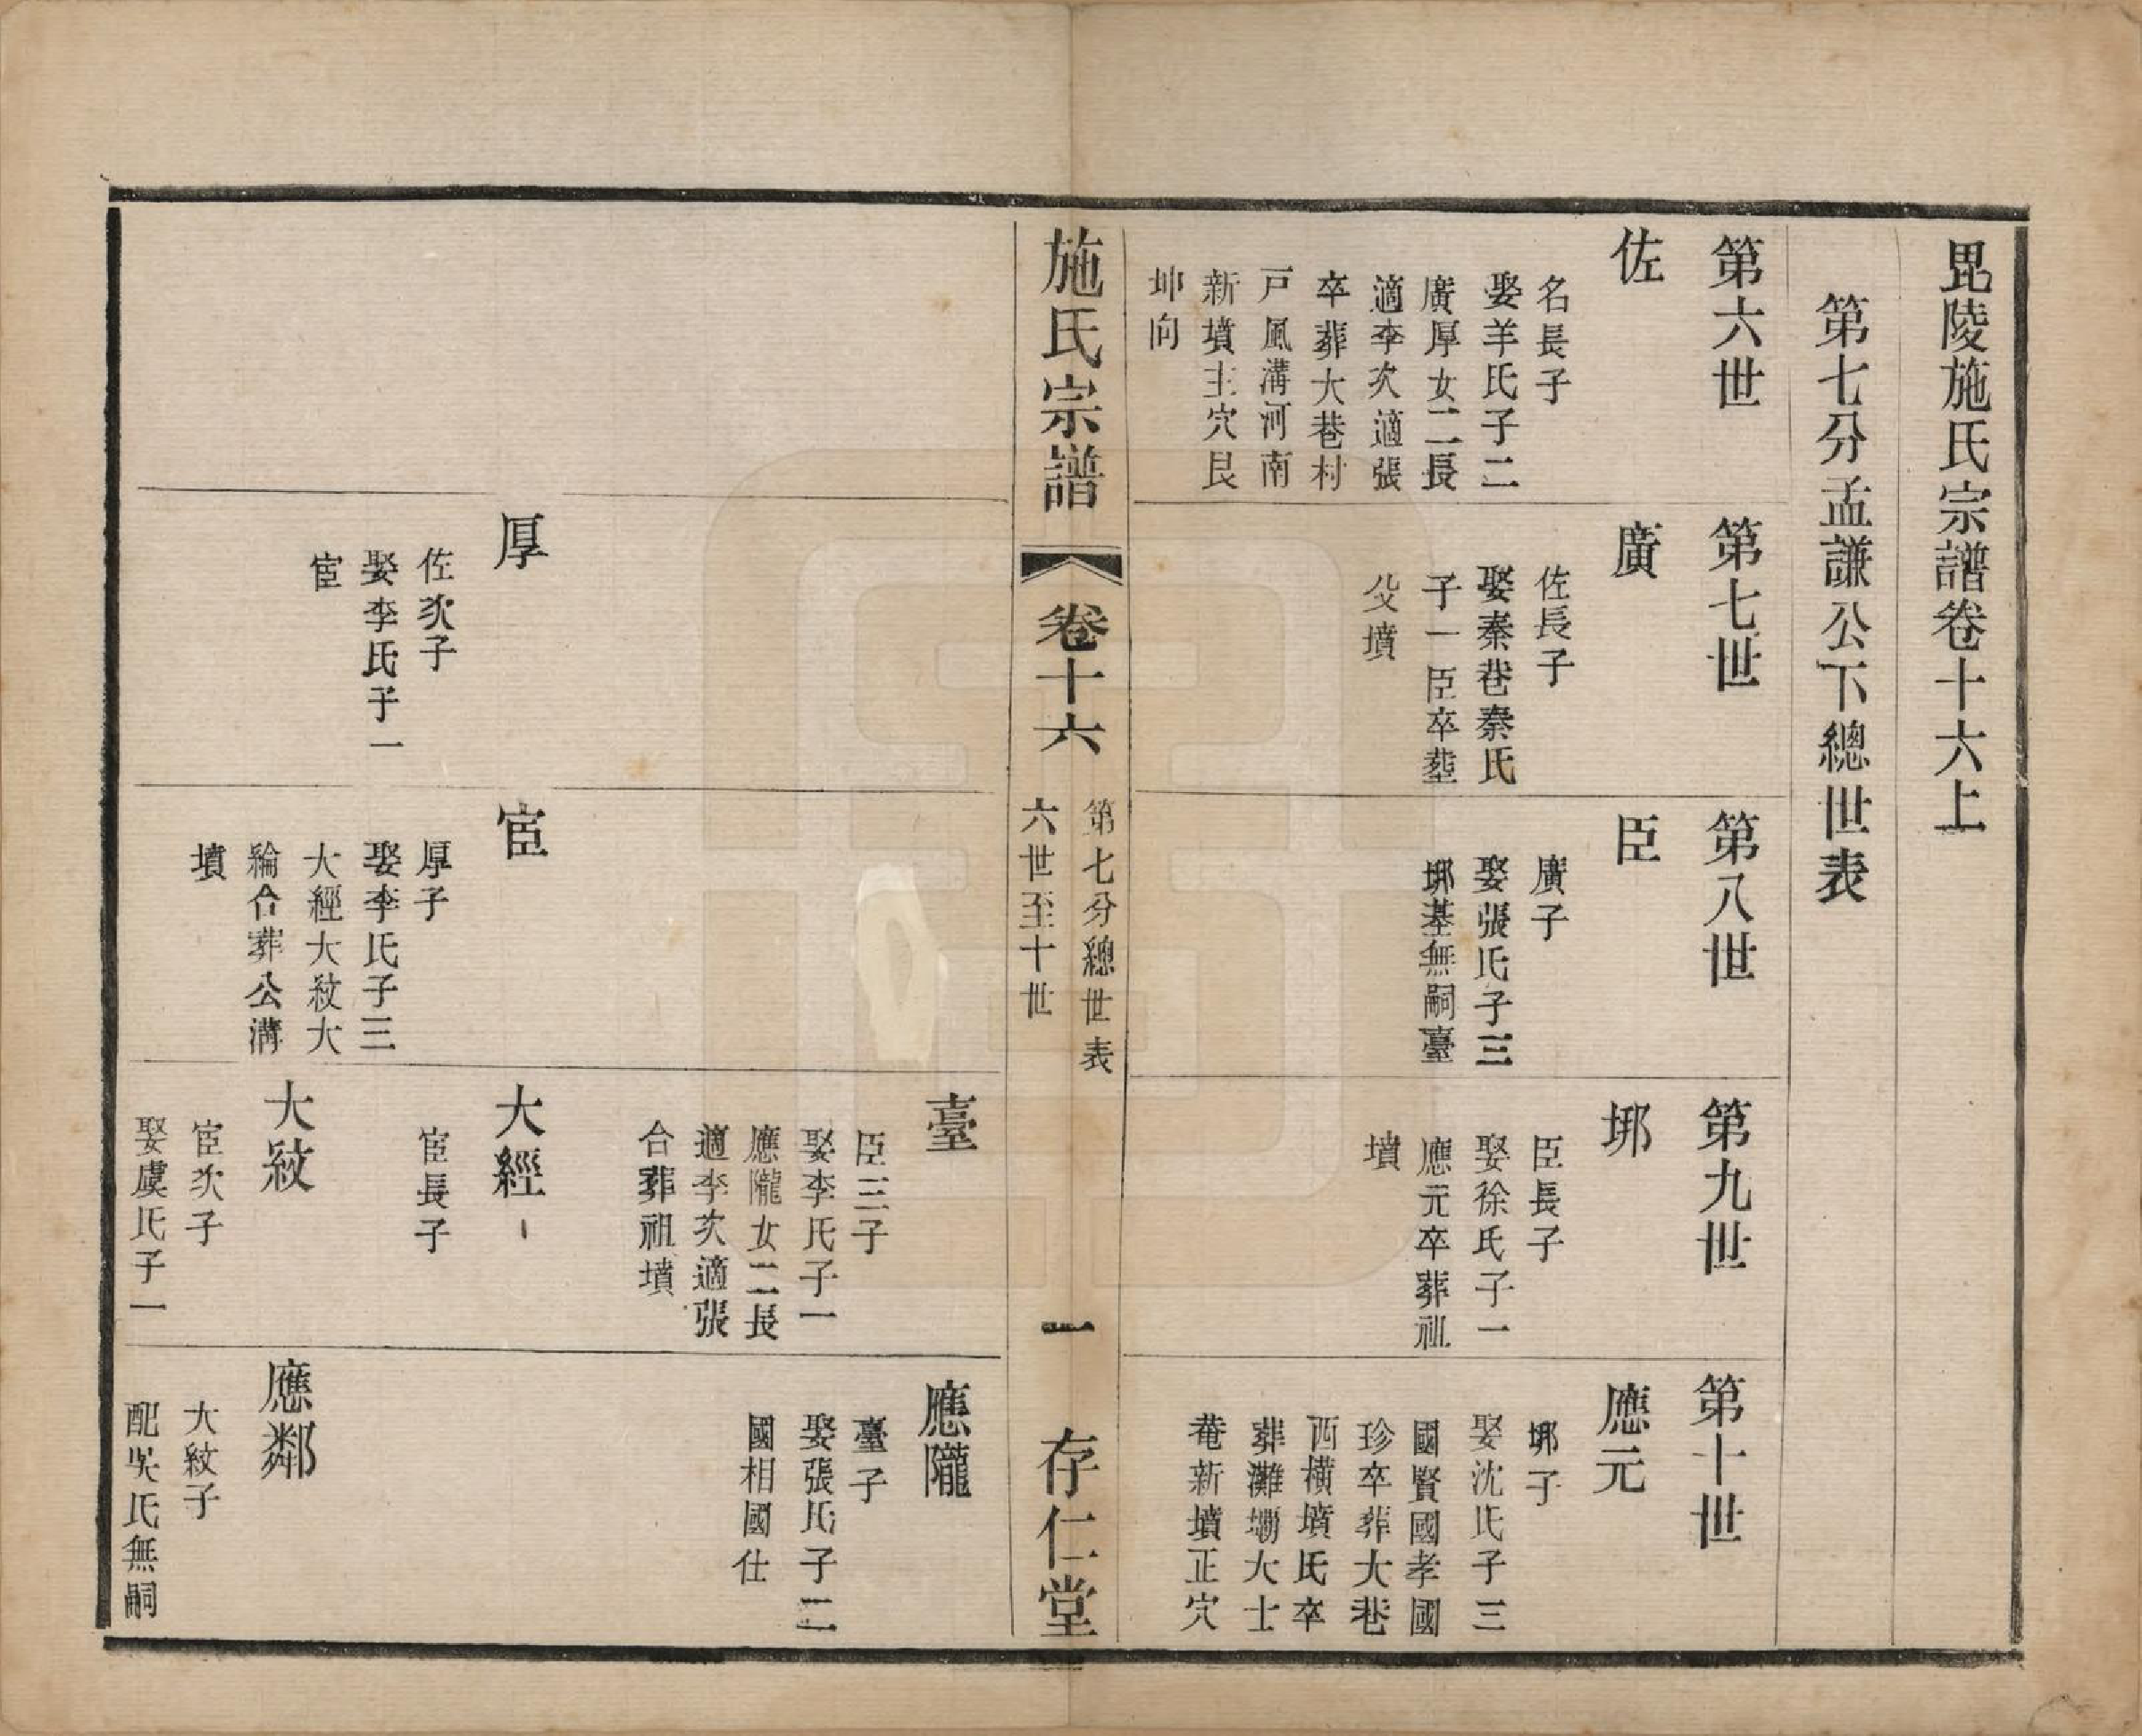 毘陵施氏宗譜卷十六上
第七分孟謙公下總世表
第六世
佐
名長子
娶羊氏子二
廣厚女二長
適李次適張
卒葬大巷村
戸風溝河南
新墳主穴艮
坤向
第七世
廣
佐長子
娶秦巷秦氏
子一臣卒塟
父墳
第八世
臣
廣子
娶張氏子三
㙇基無嗣臺
第九世
㙇
臣長子
娶徐氏子一
應元卒葬祖
墳
第十世
應元
㙇子
娶沈氏子三
國賢國孝國
珍卒葬大巷
西橫墳氏卒
葬灘塴大士
菴新墳正穴
施氏宗譜
卷十六
第七分總世表
六世至十世
一
存仁堂
臺
臣三子
娶李氏子一
應隴女二長
適李次適張
合葬祖墳
應隴
臺子
娶張氏子二
國相國仕
厚
佐次子
娶李氏子一
宦
宦
厚子
娶李氏子三
大經大紋大
綸合葬公溝
墳
大經
宦長子
大紋
宦次子
娶虞氏子一
應鄰
大紋子
配吳氏無嗣